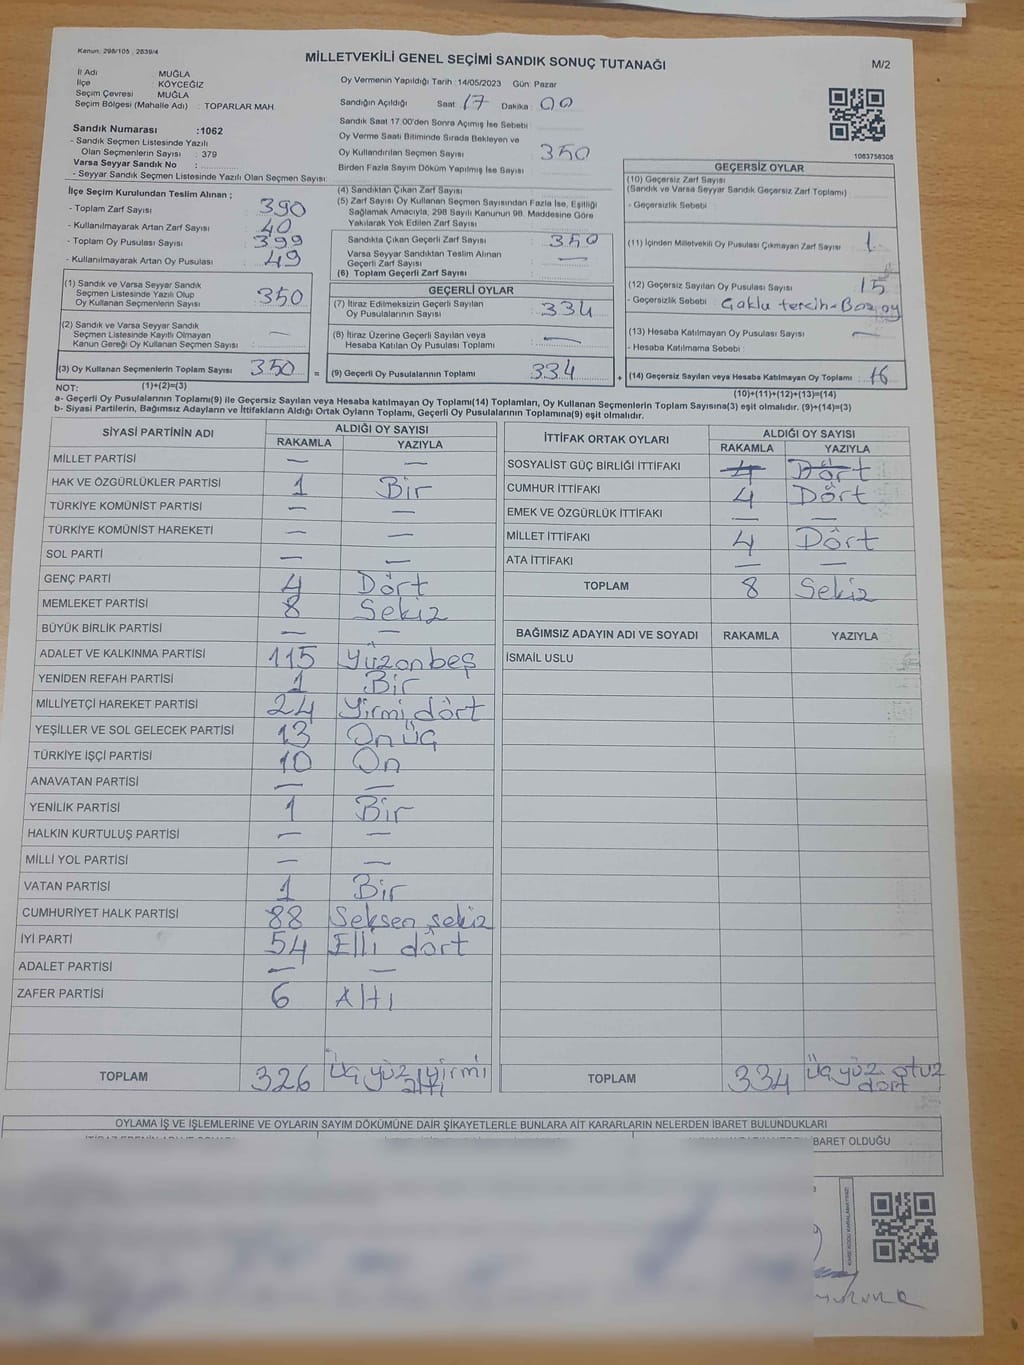 Kanun: 298/105 , 2839/4
MİLLETVEKİLİ GENEL SEÇİMİ SANDIK SONUÇ TUTANAĞI
M/2
İl Adı : MUĞLA
İlçe : KÖYCEĞİZ
Seçim Çevresi : MUĞLA
Seçim Bölgesi (Mahalle Adı) : TOPARLAR MAH.
Sandık Numarası :1062
- Sandık Seçmen Listesinde Yazılı
Olan Seçmenlerin Sayısı : 379
Varsa Seyyar Sandık No :
- Seyyar Sandık Seçmen Listesinde Yazılı Olan Seçmen Sayısı:
Oy Vermenin Yapıldığı Tarih : 14/05/2023 Gün: Pazar
Sandığın Açıldığı Saat : 17 Dakika : 00
Sandık Saat 17:00'den Sonra Açımış İse Sebebi
Oy Verme Saati Bitiminde Sırada Bekleyen ve
Oy Kullandırılan Seçmen Sayısı : 350
Birden Fazla Sayım Döküm Yapılmış İse Sayısı :
1063758308
İlçe Seçim Kurulundan Teslim Alınan ;
- Toplam Zarf Sayısı : 390
- Kullanılmayarak Artan Zarf Sayısı : 40
- Toplam Oy Pusulası Sayısı : 399
- Kullanılmayarak Artan Oy Pusulası : 49
(1) Sandık ve Varsa Seyyar Sandık
Seçmen Listesinde Yazılı Olup
Oy Kullanan Seçmenlerin Sayısı : 350
(2) Sandık ve Varsa Seyyar Sandık
Seçmen Listesinde Kayıtlı Olmayan
Kanun Gereği Oy Kullanan Seçmen Sayısı : —
(3) Oy Kullanan Seçmenlerin Toplam Sayısı : 350
(4) Sandıktan Çıkan Zarf Sayısı :
(5) Zarf Sayısı Oy Kullanan Seçmen Sayısından Fazla İse, Eşitliği
Sağlamak Amacıyla, 298 Sayılı Kanunun 98. Maddesine Göre
Yakılarak Yok Edilen Zarf Sayısı :
Sandıkta Çıkan Geçerli Zarf Sayısı : 350
Varsa Seyyar Sandıktan Teslim Alınan
Geçerli Zarf Sayısı : —
(6) Toplam Geçerli Zarf Sayısı :
GEÇERLİ OYLAR
(7) İtiraz Edilmeksizin Geçerli Sayılan
Oy Pusulalarının Sayısı : 334
(8) İtiraz Üzerine Geçerli Sayılan veya
Hesaba Katılan Oy Pusulası Toplamı : —
= (9) Geçerli Oy Pusulalarının Toplamı : 334
GEÇERSİZ OYLAR
(10) Geçersiz Zarf Sayısı
(Sandık ve Varsa Seyyar Sandık Geçersiz Zarf Toplamı) :
- Geçersizlik Sebebi :
(11) İçinden Milletvekili Oy Pusulası Çıkmayan Zarf Sayısı : 1
(12) Geçersiz Sayılan Oy Pusulası Sayısı : 15
- Geçersizlik Sebebi : Çoklu tercih-Boş oy
(13) Hesaba Katılmayan Oy Pusulası Sayısı : —
- Hesaba Katılmama Sebebi :
+ (14) Geçersiz Sayılan veya Hesaba Katılmayan Oy Toplamı : 16
NOT: (1)+(2)=(3)
(10)+(11)+(12)+(13)=(14)
a- Geçerli Oy Pusulalarının Toplamı(9) ile Geçersiz Sayılan veya Hesaba Katılmayan oy Toplamı(14) Toplamları, Oy Kullanan Seçmenlerin Toplam Sayısına(3) eşit olmalıdır. (9)+(14)=(3)
b- Siyasi Partilerin, Bağımsız Adayların ve İttifakların Aldığı Ortak Oyların Toplamı, Geçerli Oy Pusulalarının Toplamına(9) eşit olmalıdır.
SİYASİ PARTİNİN ADI ALDIĞI OY SAYISI
RAKAMLA YAZIYLA
MİLLET PARTİSİ — —
HAK VE ÖZGÜRLÜKLER PARTİSİ 1 Bir
TÜRKİYE KOMÜNİST PARTİSİ — —
TÜRKİYE KOMÜNİST HAREKETİ — —
SOL PARTİ — —
GENÇ PARTİ 4 Dört
MEMLEKET PARTİSİ 8 Sekiz
BÜYÜK BİRLİK PARTİSİ — —
ADALET VE KALKINMA PARTİSİ 115 Yüzonbeş
YENİDEN REFAH PARTİSİ 1 Bir
MİLLİYETÇİ HAREKET PARTİSİ 24 Yirmi dört
YEŞİLLER VE SOL GELECEK PARTİSİ 13 On üç
TÜRKİYE İŞÇİ PARTİSİ 10 On
ANAVATAN PARTİSİ — —
YENİLİK PARTİSİ 1 Bir
HALKIN KURTULUŞ PARTİSİ — —
MİLLİ YOL PARTİSİ — —
VATAN PARTİSİ 1 Bir
CUMHURİYET HALK PARTİSİ 88 Seksen sekiz
İYİ PARTİ 54 Elli dört
ADALET PARTİSİ — —
ZAFER PARTİSİ 6 Altı
TOPLAM 326 Üç yüz yirmi
altı
İTTİFAK ORTAK OYLARI ALDIĞI OY SAYISI
RAKAMLA YAZIYLA
SOSYALİST GÜÇ BİRLİĞİ İTTİFAKI 4 Dört
CUMHUR İTTİFAKI 4 Dört
EMEK VE ÖZGÜRLÜK İTTİFAKI — —
MİLLET İTTİFAKI 4 Dört
ATA İTTİFAKI — —
TOPLAM 8 Sekiz
BAĞIMSIZ ADAYIN ADI VE SOYADI RAKAMLA YAZIYLA
İSMAİL USLU
TOPLAM 334 Üç yüz otuz
dört
OYLAMA İŞ VE İŞLEMLERİNE VE OYLARIN SAYIM DÖKÜMÜNE DAİR ŞİKAYETLERLE BUNLARA AİT KARARLARIN NELERDEN İBARET BULUNDUKLARI
İBARET OLDUĞU